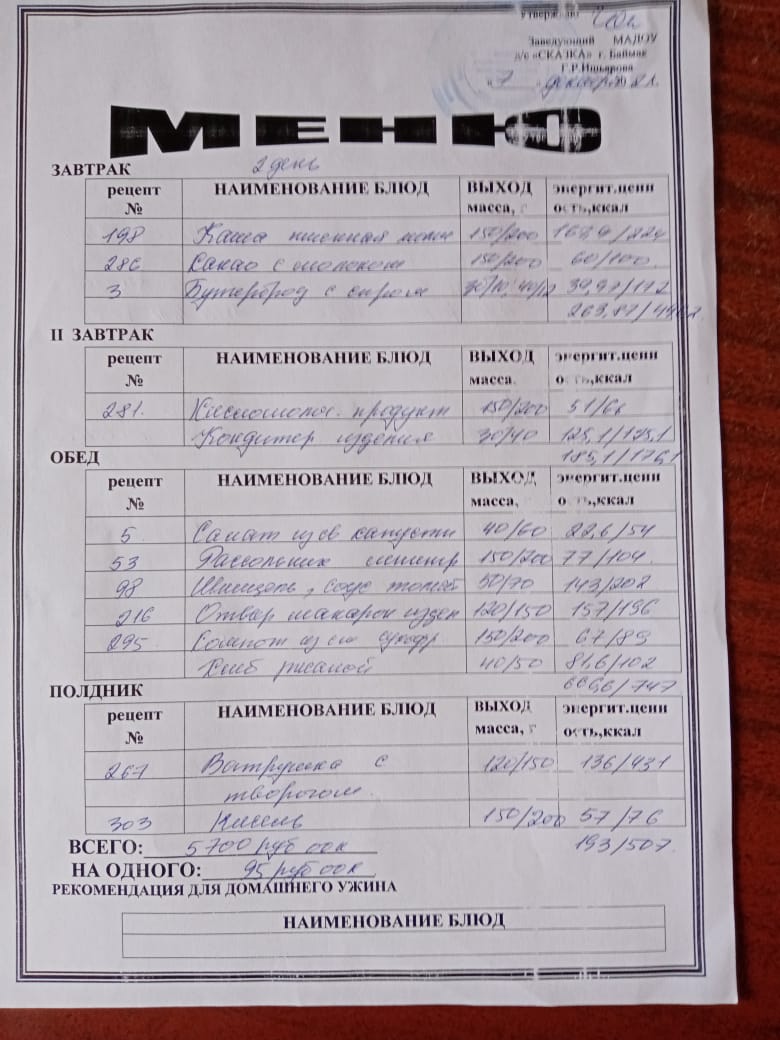 Утверждаю
Заведующий МАДОУ
д/с «СКАЗКА» г. Баймак
Г.Р.Ишьярова
« 7 декабря 20
МЕНЮ
2 день
ЗАВТРАК
рецепт № НАИМЕНОВАНИЕ БЛЮД ВЫХОД масса, г энергит.ценн ость,ккал
198 Каша пшенная 150/200 167,9/224
286 Какао с молоком 150/200 60/100
3 Бутерброд с сыром 30/10, 40/12 39,97/
263,87/
II ЗАВТРАК
рецепт № НАИМЕНОВАНИЕ БЛЮД ВЫХОД масса. энергит.ценн ость,ккал
281. Кисломолоч. продукт 150/200 51/
Кондитер изделия 30/40 125,1/175,1
185,1/176,1
ОБЕД
рецепт № НАИМЕНОВАНИЕ БЛЮД ВЫХОД масса, энергит.ценн ость,ккал
5 Салат из св капусты 40/60 22,6/54
53 Рассольник ленингр 150/200 77/104
98 Шницель, соус томат 50/70 143/202
216 Отвар макарон издел 120/150 157/196
295 Компот из см сухофр 150/200 67/89
Хлеб ржаной 40/50 81,6/102
666,6/747
ПОЛДНИК
рецепт № НАИМЕНОВАНИЕ БЛЮД ВЫХОД масса, г энергит.ценн ость,ккал
267 Ватрушка с 120/150 136/431
творогом.
303 Кисель 150/200 57/76
ВСЕГО: 5700 руб 00к 193/507.
НА ОДНОГО: 95 руб 00к
РЕКОМЕНДАЦИЯ ДЛЯ ДОМАШНЕГО УЖИНА
НАИМЕНОВАНИЕ БЛЮД